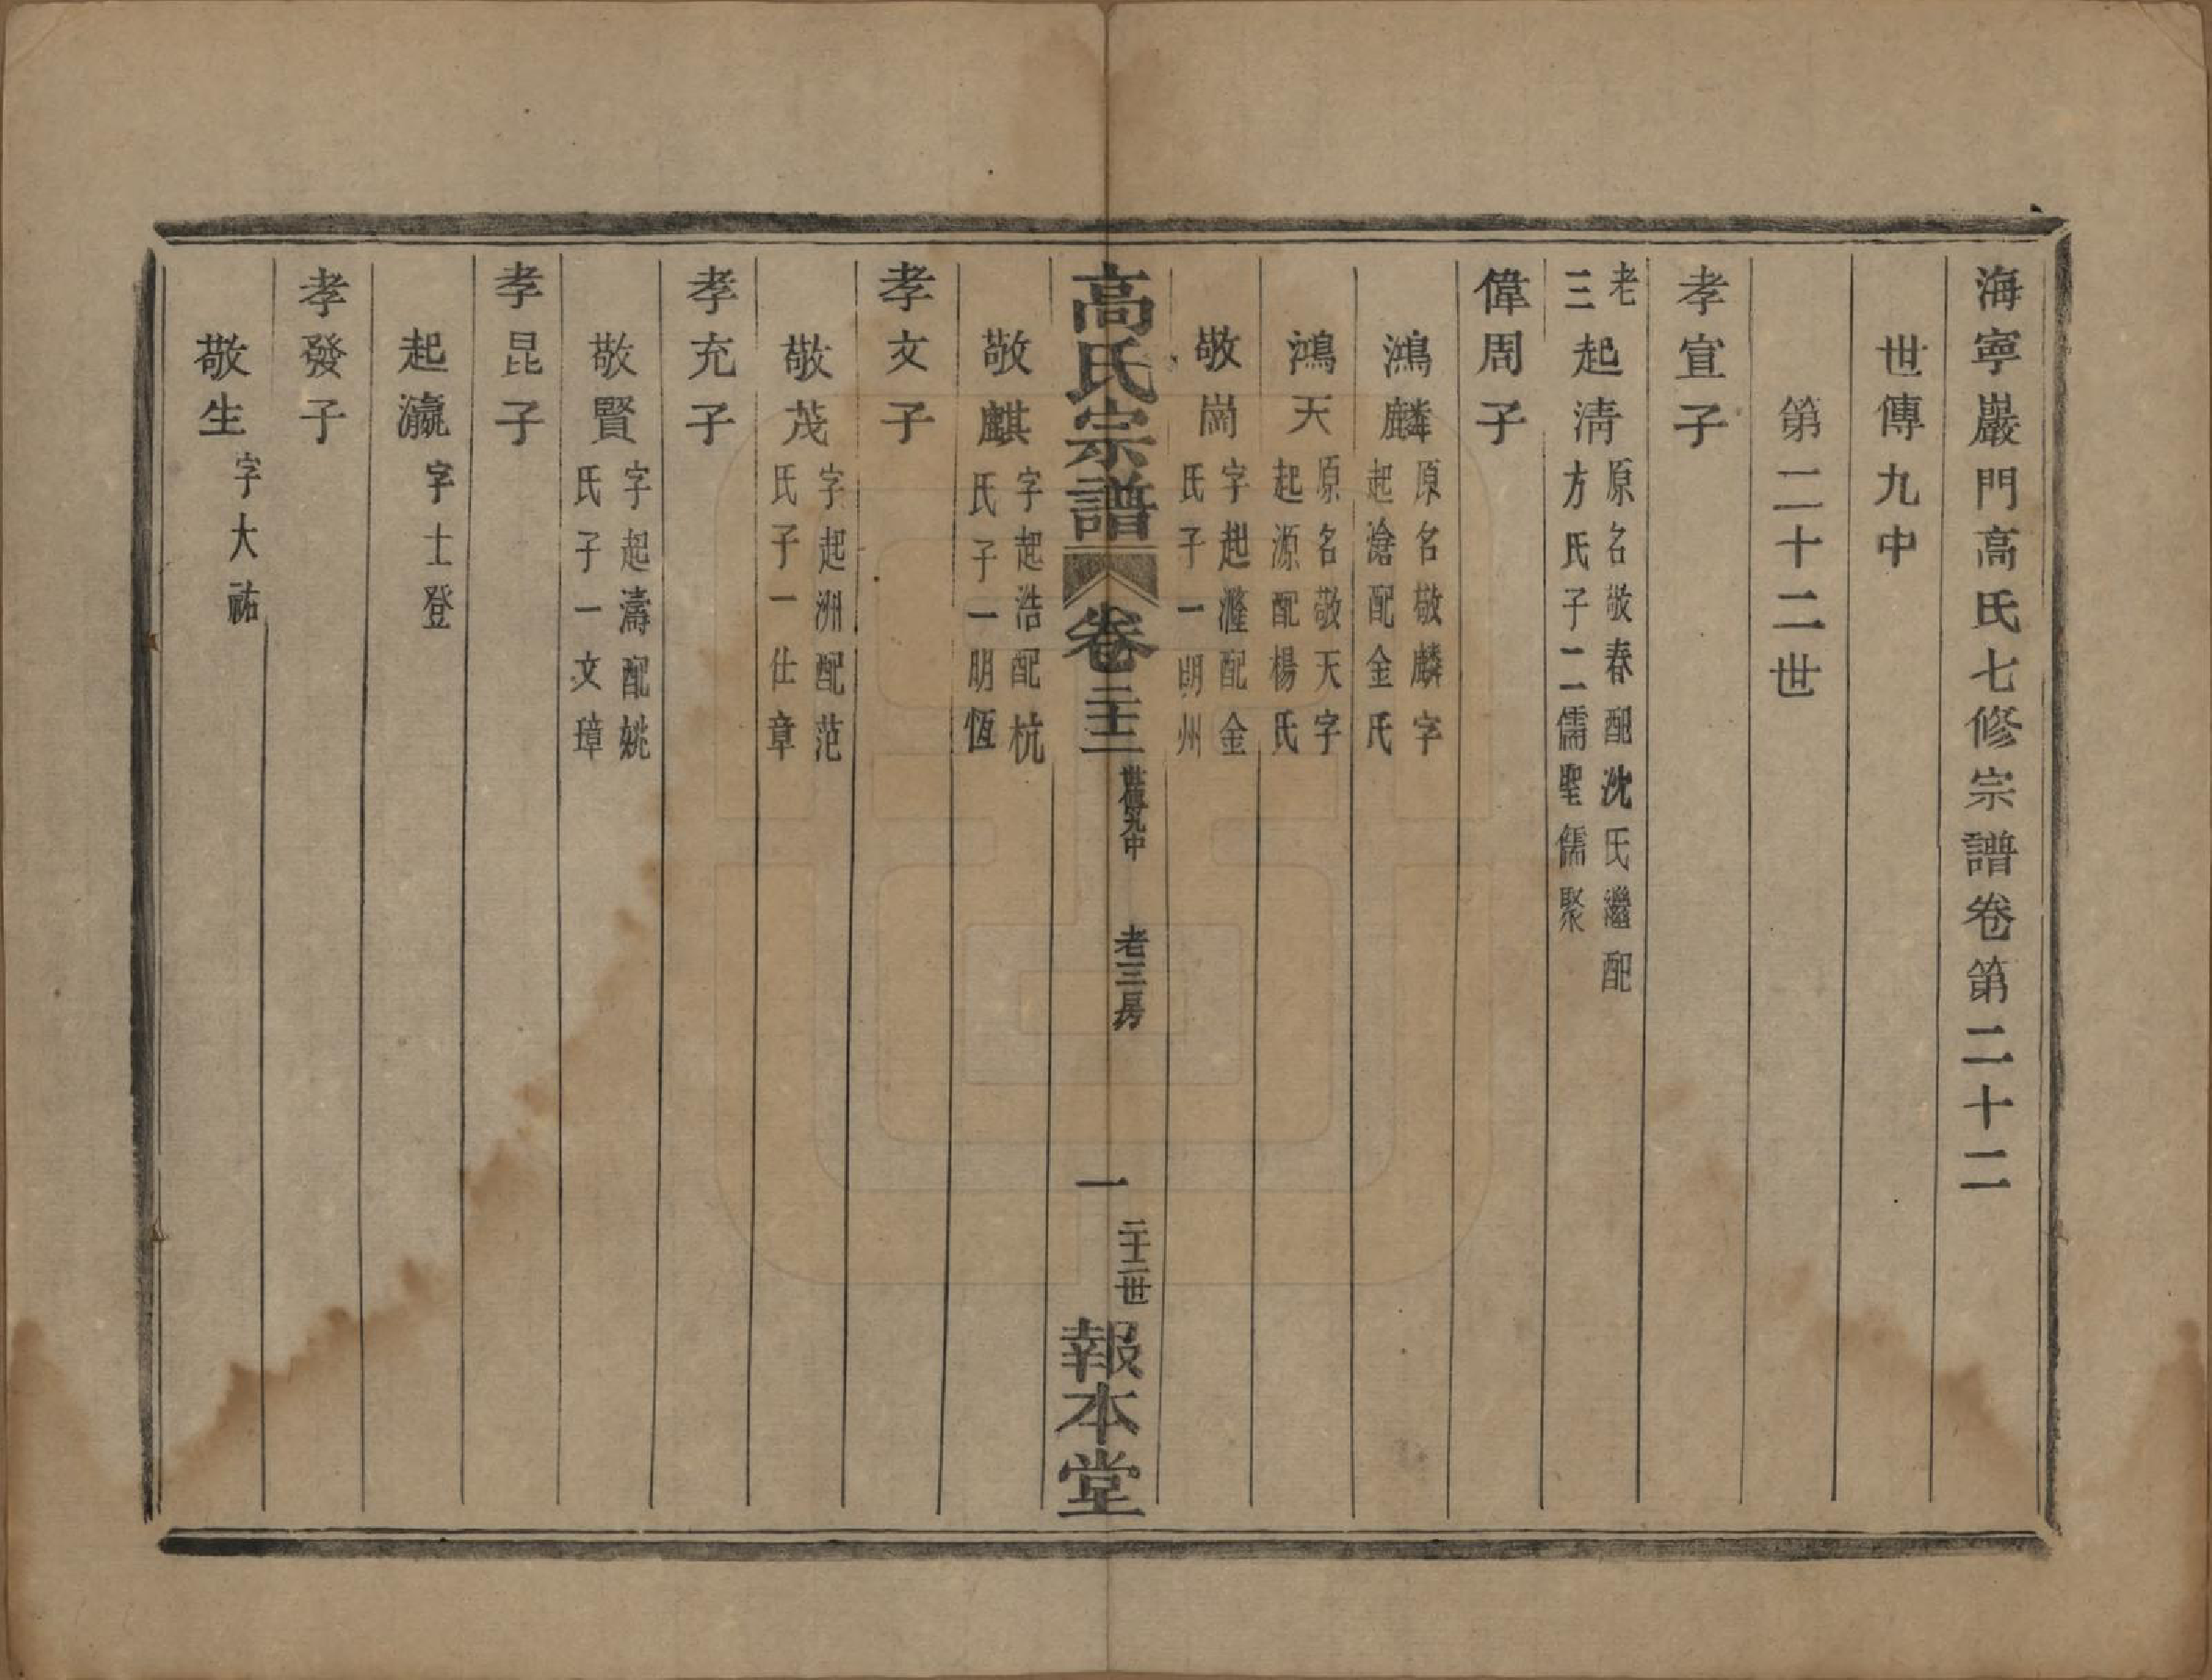 海寧巖門高氏七修宗譜卷第二十二
世傳九中
第二十二世
孝宣子
老三 起淸 原名敬春配沈氏繼配方氏子二儒聖儒聚
偉周子
鴻麟 原名敬麟字起滄配金氏
鴻天 原名敬天字起源配楊氏
敬崗 字起漋配金氏子一明州
高氏宗譜 卷二十二 世傳九中 老三房 一 二十二世 報本堂
敬麒 字起浩配杭氏子一明恆
孝文子
敬茂 字起洲配范氏子一仕章
孝充子
敬賢 字起濤配姚氏子一文璋
孝昆子
起瀛 字士登
孝發子
敬生 字大祐